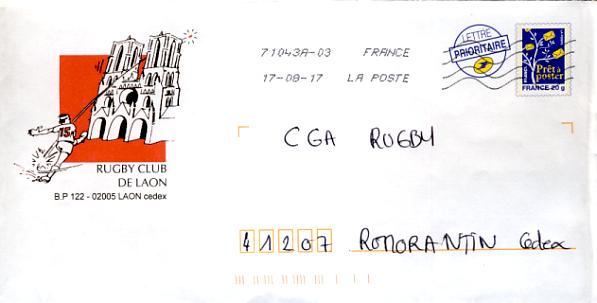 71043A-03 FRANCE
17-08-17 LA POSTE
LETTRE
PRIORITAIRE
Prêt à
poster
FRANCE-20 g
15
RUGBY CLUB
DE LAON
B.P 122 - 02005 LAON cedex
CGA RUGBY
41207 ROMORANTIN Cedex